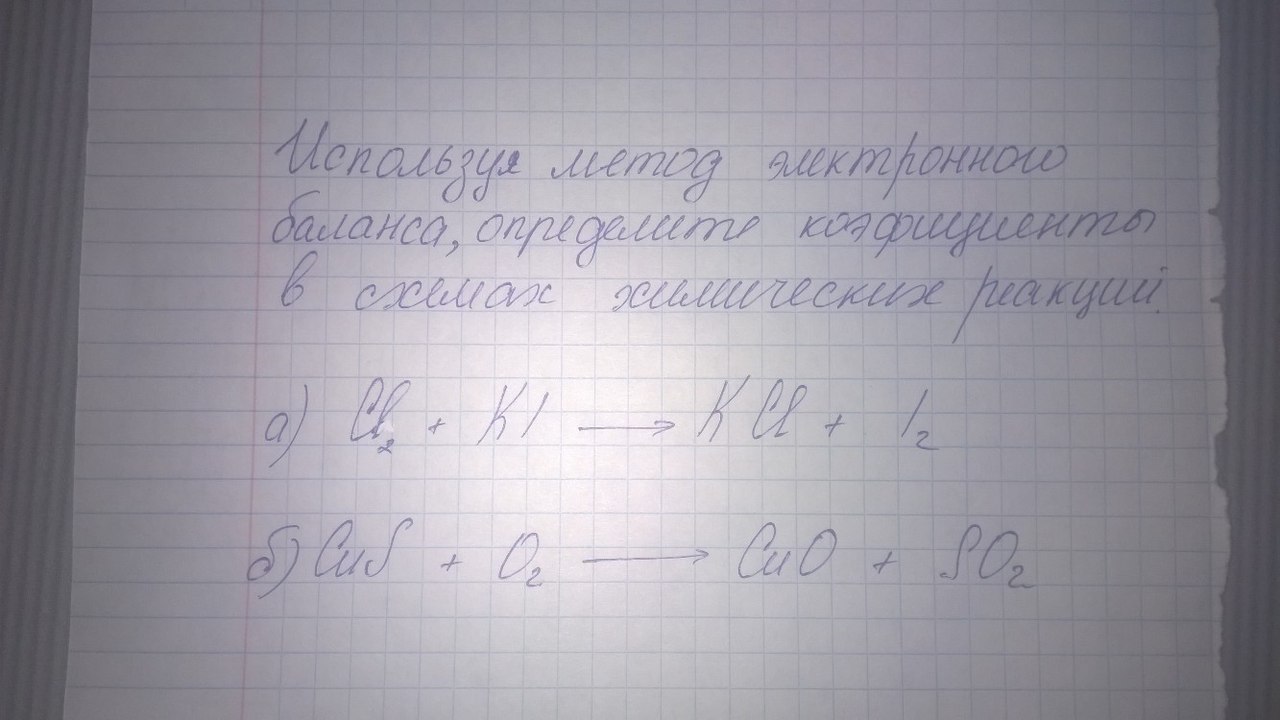 Используя метод электронного
баланса, определите коэфициенты
в схемах химических реакций.
а) Cl₂ + KI → KCl + I₂
б) CuS + O₂ → CuO + SO₂